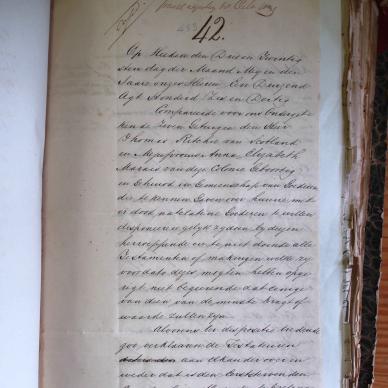 42.
Op Heeden den Drie en Twintig
sten dag der Maand Mey in den
Jaare onzes Heeren Een Duizend
Agt Honderd Zes en Dertig
Compareerde voor ons Onderget
kende Zeven Getuigen den Heer
Thomas Ritchie van Scotland
en Mejufvrouw Anna Elizabeth
Marais van deze Colonie Geboortig
en Gehuwd in Gemeenschap van Goederen
die te kennen Gaven over hunne met
er dood natelatene Goederen te willen
disponeeren gelyk zy doen by dezen
herroepende en te niet doende alle
Testamenten of makingen welke zy
voor dato dezes mogten hebben opge
regt, niet begeerende dat eenige
van dien van de minste kragt of
waarde zullen zyn.
Alvorens ter dispositie tredende
zoo verklaarden de Testateuren
aan Elkander over en
weder dat is den Eerststervende